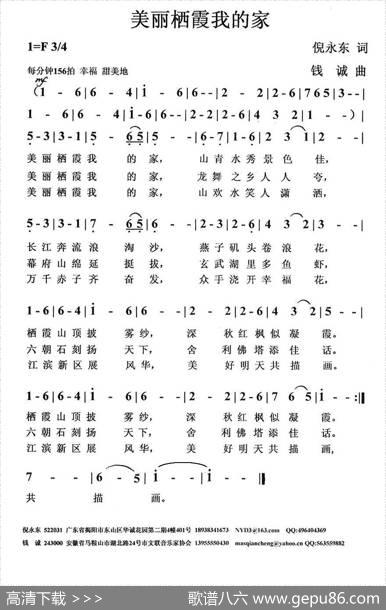 美丽栖霞我的家
1=F 3/4
倪永东 词
每分钟156拍 幸福 甜美地
钱 诚 曲
mf
(1 - 6|6 - 4|i - 6|6 - -|3 - 2|2 - 2|2 - 6|7 6 5|3 - -|
1 - 2|6 - 6|i - 6|6 - -|3 - 2|2 - 4|3 2 1|1 - -)|
5 - 3|3 - 1|5 - 6 5|5 - -|6 - 7|1 - 6|2 3 1|2 - -|
美丽栖霞我 的家, 山青水秀景色 佳,
美丽栖霞我 的家, 龙舞之乡人人 夸,
美丽栖霞我 的家, 山欢水笑人潇 洒,
5 - 3|3 - 1|7 - 6 5|5 - -|2 - 3|2 - 6|4 3 2|3 - -|
长江奔流浪 淘沙, 燕子矶头卷浪 花,
幕府山绵延 挺拔, 玄武湖里多鱼 虾,
万千赤子齐 奋发, 众手浇开幸福 花,
1 - 6|6 - 4|i - 6|6 - -|3 - 2|2 - 4|3 2 6|1 - -|
栖霞山顶披 雾纱, 深 秋红枫似凝 霞。
六朝石刻扬 天下, 舍 利佛塔添佳 话。
江滨新区展 风华, 美 好明天共描 画。
1 - 6|6 - 4|i - 6|6 - -|3 - 2|2 - 4|7 6 5|i - -:||
栖霞山顶披 雾纱, 深 秋红枫似凝 霞。
六朝石刻扬 天下, 舍 利佛塔添佳 话。
江滨新区展 风华, 美 好明天共描 画。
7 - -|6 - -|i - -|i - -||
共 描 画。
倪永东 522031 广东省揭阳市东山区华诚花园第二期4幢401号 18938341673 NYD3@163.com QQ:496404369
钱 诚 243000 安徽省马鞍山市湖北路24号市文联音乐家协会 13955550430 masqiancheng@yahoo.cn QQ:563559882
高清下载 >>>
歌谱八六 www.gepu86.com